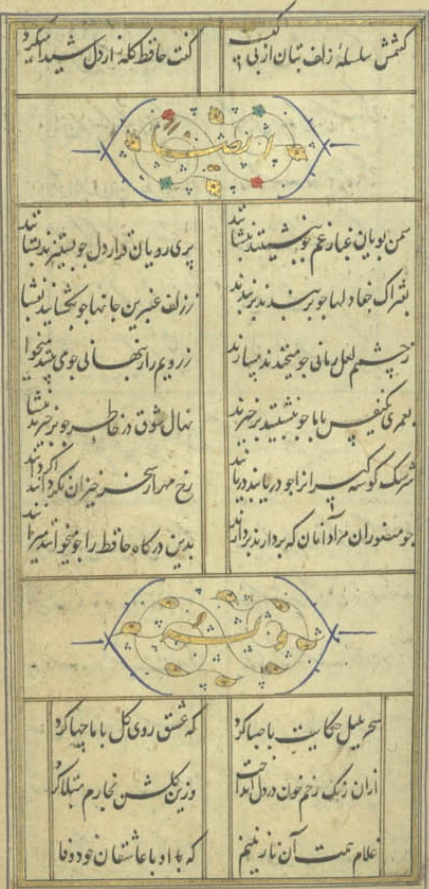 گفتمش سلسله زلف بتان از پی چیست گفت حافظ گله از دل شیدا میکرد
ایضا
سمن بویان غبار غم چو بنشینند بنشانند پری رویان قرار دل چو بستیزند بستانند
بفتراک جفا دلها چو بربندند بربندند ز زلف عنبرین جانها چو بگشایند بفشانند
ز چشمم لعل رمانی چو میخندند میبارند ز رویم راز پنهانی چو می بینند میخوانند
بعمری یکنفس با ما چو بنشینند برخیزند نهال شوق در خاطر چو برخیزند بنشانند
سرشک گوشه گیرانرا چو دریابند دریابند رخ مهر از سحر خیزان نگردانند اگر دانند
چو منصوران مراد آنان که بردارند بر دارند بدین درگاه حافظ را چو میخوانند میرانند
وله
سحر بلبل حکایت با صبا کرد که عشق روی گل با ما چها کرد
ازان رنگ رخم خون در دل انداخت وزین گلشن بخارم مبتلا کرد
غلام همت آن نازنینم که با او با عاشقان خود وفا